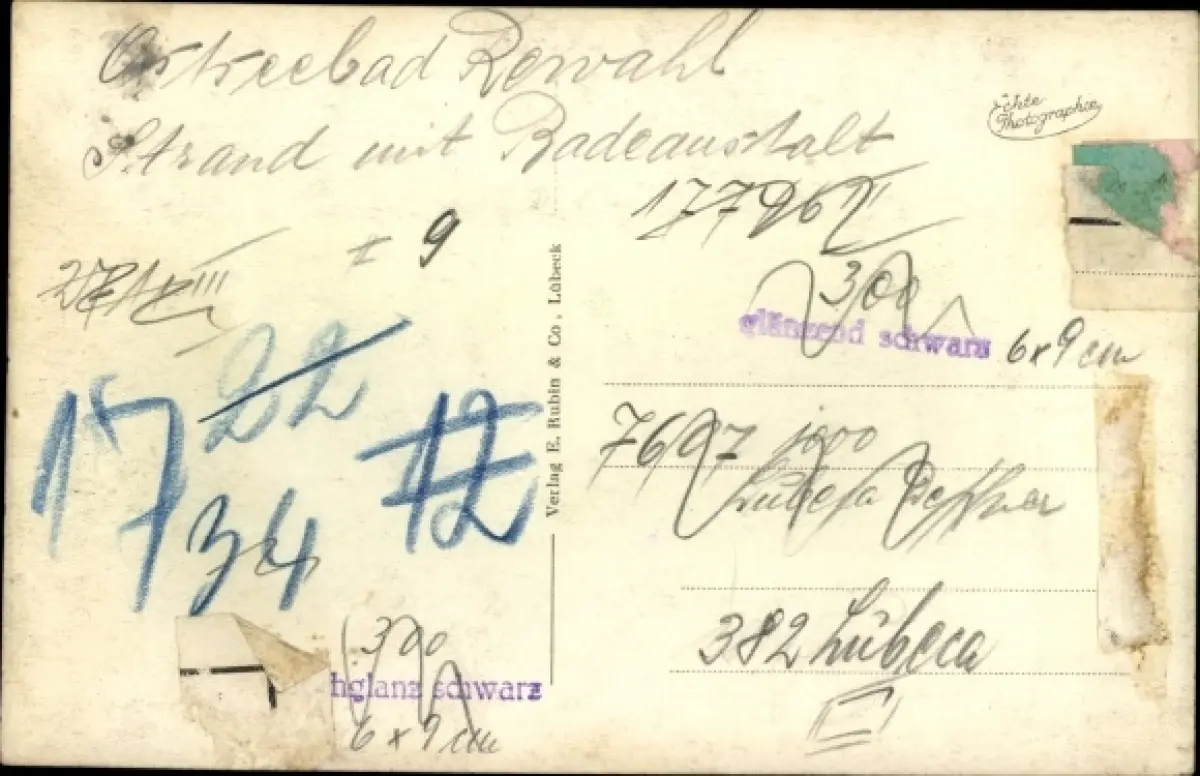 Ostseebad Rewahl
Strand mit Badeanstalt
Echte
Photographie
9
300
glänzend schwarz 6x9 cm
22
17
12
34
Verlag E. Rubin & Co., Lübeck
7697 1000
382 Lübeca
300
hglanz schwarz
6x9 cm